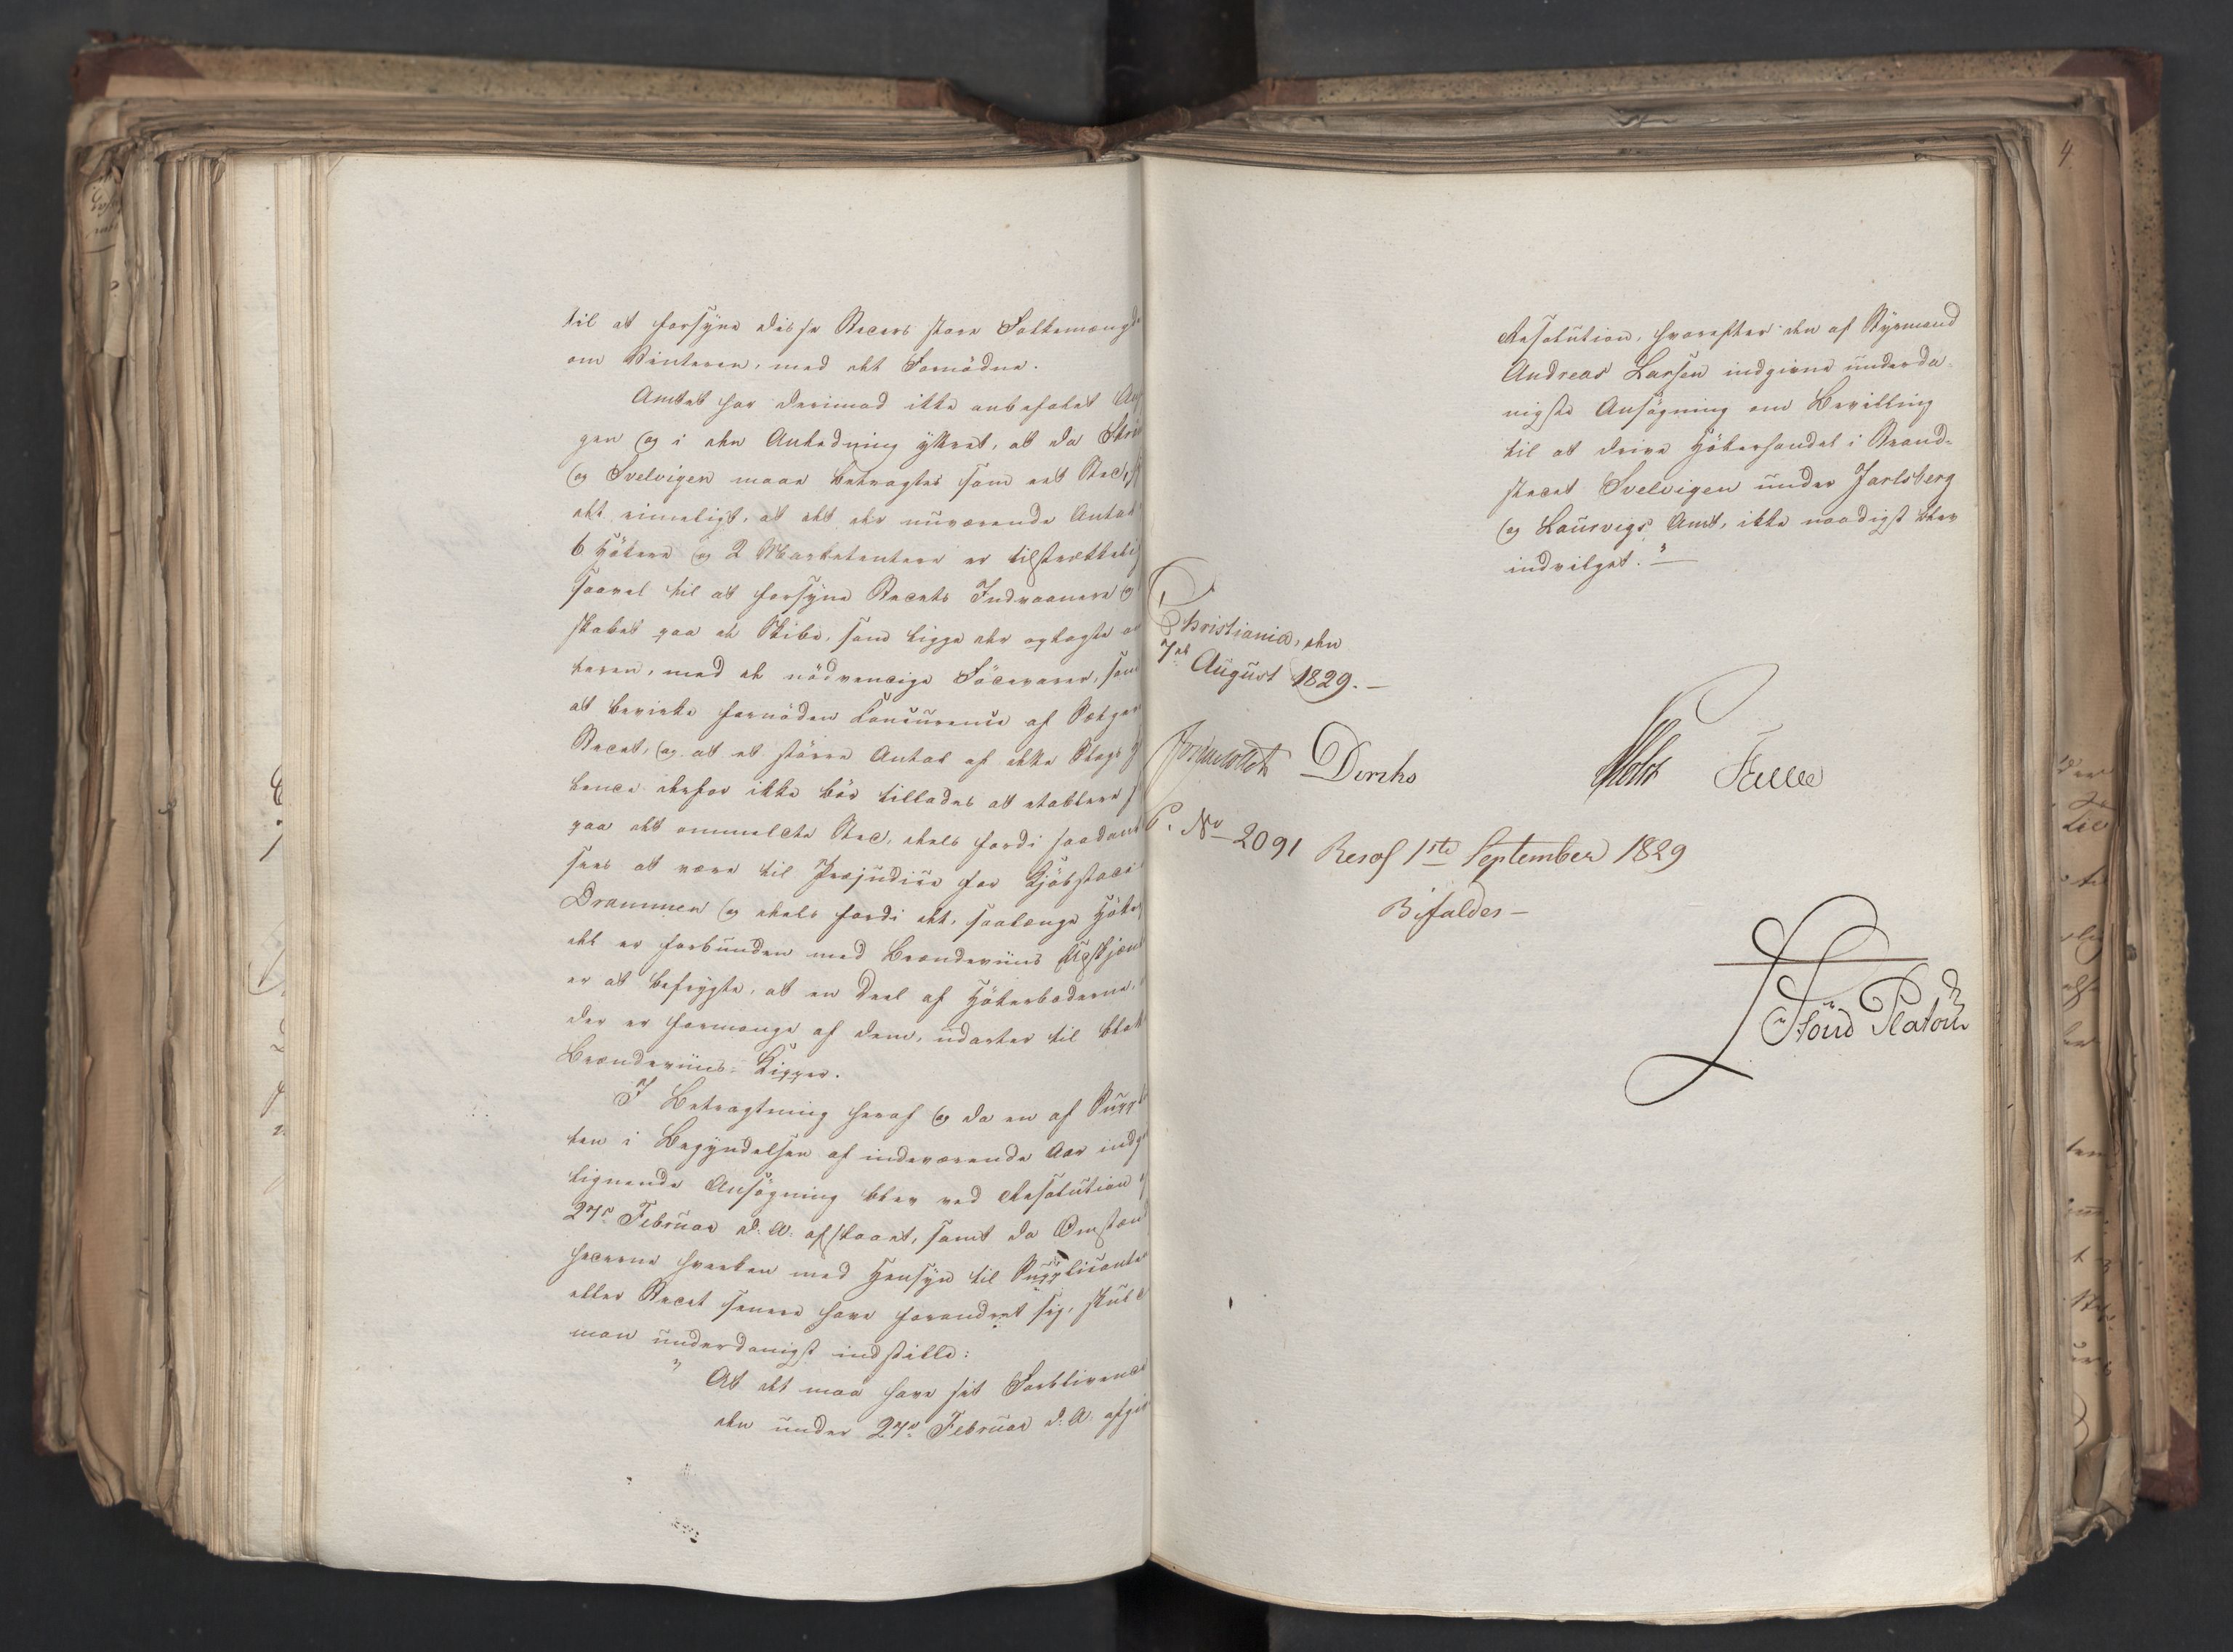 til at forsyne disse Steders store Folkemængde
om Vinteren, med det Fornødne.
Amtet har derimod ikke anbefalet An
gen og i den Anledning yttret, at da
og Svelvigen maae betragtes som eet Sted,
det rimeligt, at det der nuværende Antal
6 Høkere og 2 Marketentere er tilstrækkelig
saavel til at forsyne Stedets Indvaanere og
skabet paa de Skibe, som ligge der oplagte om
teren, med de nødvendige Fødevarer, som
at bevirke fornøden Concurrence af Sælgere
Stedet, og at et større Antal af dette Slags
lende derfor ikke bør tillades at etablere s
paa det ommeldte Sted, deels fordi saadant
sees at være til Præjudice for Kjøbstaden
Drammen og deels fordi det, saalænge Høke
det er forbunden med Brændeviins Udskjænk
er at befrygte, at en Deel af Høkerboderne,
der er formange af dem, udarter til blot
Brændeviins-Kipper.
I Betragtning heraf og da en af Suppl
ten i Begyndelsen af indeværende Aar indg
lignende Ansøgning blev ved Resolution
27de Februar d. A. afslaaet, samt da Omstæn
hederne hverken med Hensyn til Supplicanten
eller Stedet senere have forandret sig, skulde
man underdanigst indstille:
" At det maa have sit Forblivende
den under 27de Februar d. A. afgi
Resolution, hvorefter den af Styrmand
Andreas Larsen indgivne underda-
nigste Ansøgning om Bevilling
til at drive Høkerhandel i Strand-
stedet Svelvigen under Jarlsberg
og Laurvigs Amt, ikke naadigst blev
indvilget."
Christiania, den
7de August 1829.
Diriks
Holst
P. No 2091 Resol 1ste September 1829
Bifaldes